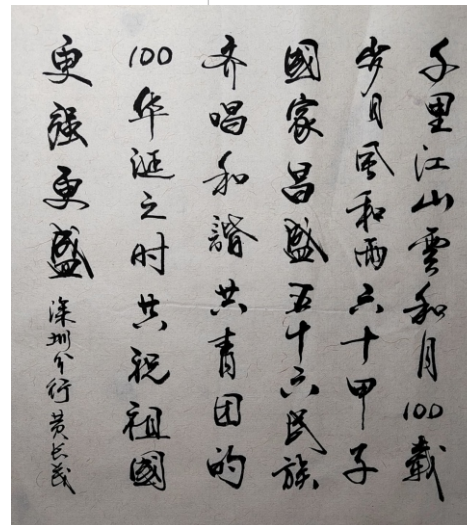 千里江山雲和月100載
岁月風和雨六十甲子
國家昌盛五十六民族
齐唱和諧共青团的
100华诞之时共祝祖國
更强更盛
深圳分行黄长茂